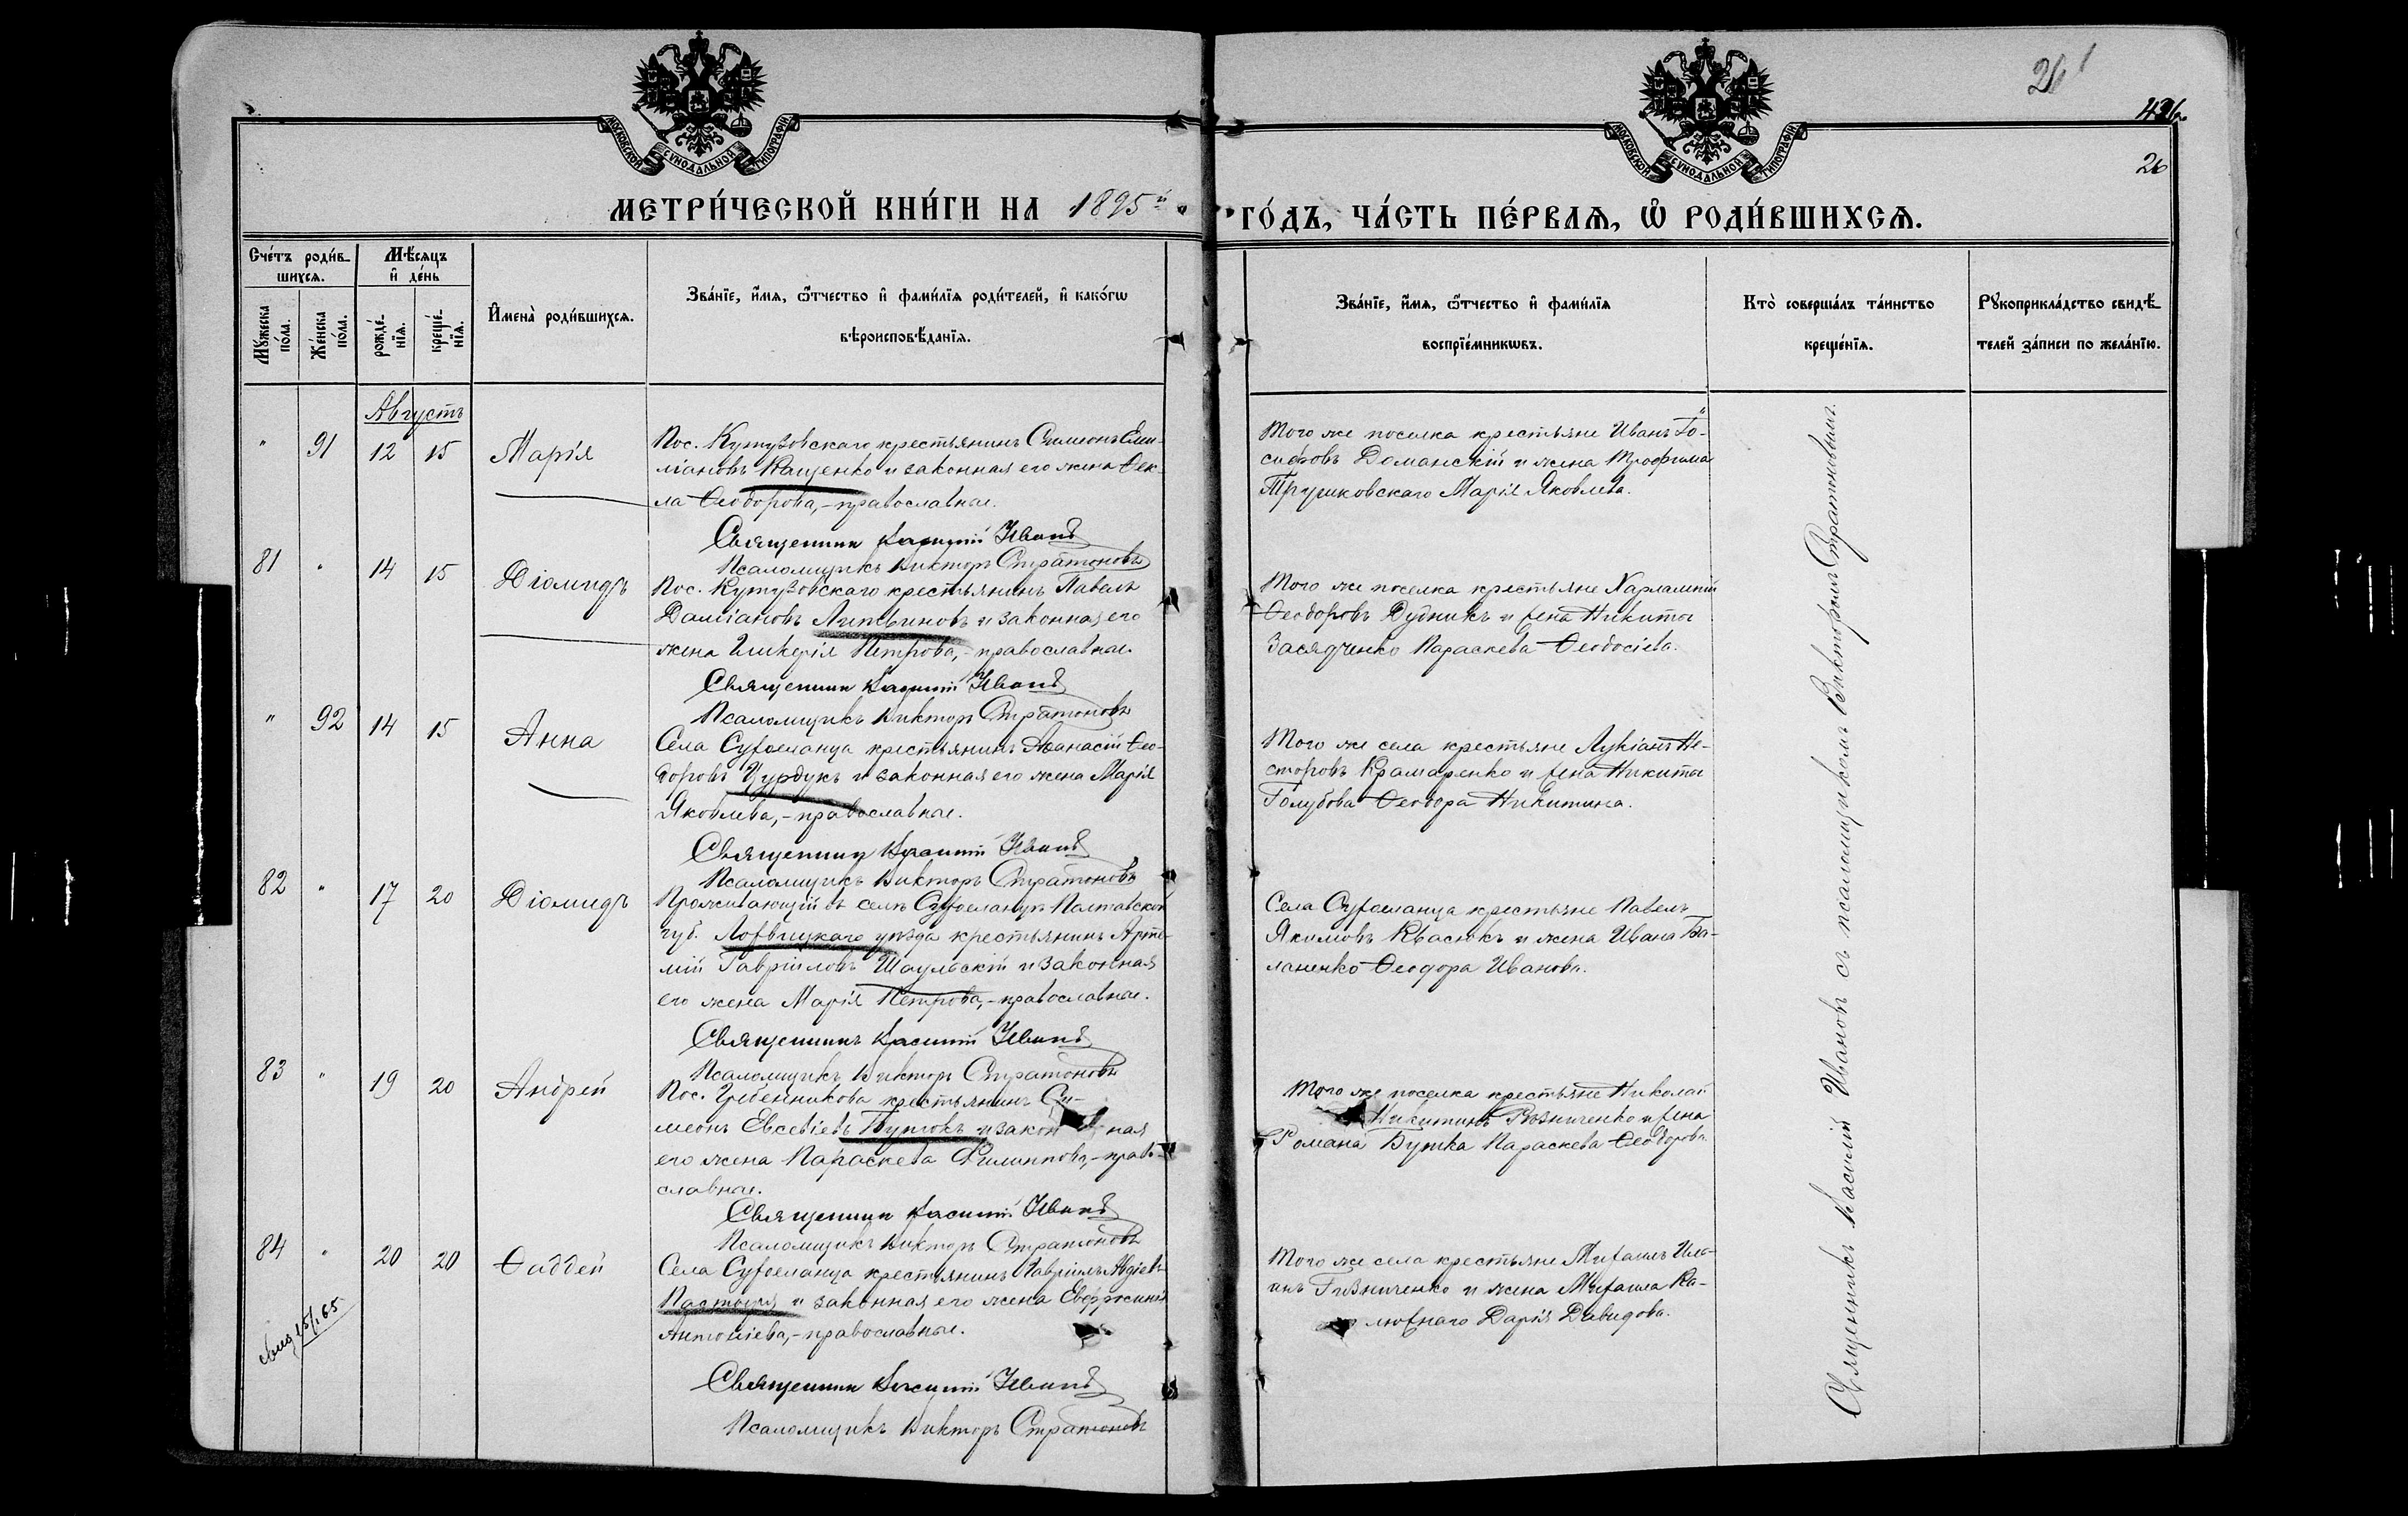 261
436
26
МОСКОВСКОЙ СѴНОДАЛЬНОЙ ТИПОГРАФІИ
МОСКОВСКОЙ СѴНОДАЛЬНОЙ ТИПОГРАФІИ
МЕТРИ́ЧЕСКОЙ КНИ́ГИ НА 1895й
ГО́ДЪ, ЧА́СТЬ ПЕ́РВАѦ, Ѡ РОДИ́ВШИХСѦ.
Сче́тъ роди́в-
шихсѧ.
Мѣ́сѧцъ
и҆ де́нь
Мꙋ́жеска по́ла.
Же́нска по́ла.
рожде́-
нїѧ.
креще́-
нїѧ.
И҆мена̀ роди́вшихсѧ.
Зва́нїе, и҆́мѧ, ѻ҆́тчество и҆ фами́лїѧ роди́телей, и҆ како́гѡ
вѣроисповѣ́данїѧ.
Зва́нїе, и҆́мѧ, ѻ҆́тчество и҆ фами́лїѧ
воспрїе́мникѡвъ.
Кто̀ соверша́лъ та́инство
креще́нїѧ.
Рꙋкоприкла́дство свидѣ́-
телей за́писи по жела́нїю.
Августъ
" 91 12 15 Марія
Пос. Кутузовскаго крестьянинъ Симеонъ Еми-
ліановъ Кащенко и законная его жена Ѳек-
ла Ѳеодорова,-православные.
Священникъ Василій Ивановъ
Псаломщикъ Викторъ Стратоновъ
Того же поселка крестьяне Иванъ Іо-
сифовъ Доманскій и жена Трофима
Трушковскаго Марія Яковлева.
81 " 14 15 Діомидъ
Пос. Кутузовскаго крестьянинъ Павелъ
Даміановъ Литвиновъ и законная его
жена Гликерія Петрова,-православные.
Священникъ Василій Ивановъ
Псаломщикъ Викторъ Стратоновъ
Того же поселка крестьяне Харлампій
Ѳеодоровъ Дудникъ и жена Никиты
Засядченко Параскева Ѳеодосіева.
" 92 14 15 Анна
Села Сухоеланца крестьянинъ Аѳанасій Ѳео-
доровъ Цурдукъ и законная его жена Марія
Яковлева,-православные.
Священникъ Василій Ивановъ
Псаломщикъ Викторъ Стратоновъ
Того же села крестьяне Лукіанъ Не-
сторовъ Крамаренко и жена Никиты
Голубова Ѳеодора Никитина.
82 " 17 20 Діомидъ
Проживающій въ селѣ Сухоеланцѣ Полтавской
губ. Лохвицкаго уѣзда крестьянинъ Арте-
мій Гавріиловъ Шаульскій и законная
его жена Марія Петрова,-православные.
Священникъ Василій Ивановъ
Псаломщикъ Викторъ Стратоновъ
Села Сухоеланца крестьяне Павелъ
Якимовъ Квасюкъ и жена Ивана Ба-
ланенко Ѳеодора Иванова.
83 " 19 20 Андрей
Пос. Гребенникова крестьянинъ Си-
меонъ Евсевіевъ и законная
его жена Параскева Филиппова,-право-
славные.
Священникъ Василій Ивановъ
Псаломщикъ Викторъ Стратоновъ
Того же поселка крестьяне Николай
Никитинъ Рѣзниченко и жена
Романа Параскева Ѳеодорова.
84 " 20 20 Ѳаддей
Села Сухоеланца крестьянинъ Гавріилъ Авдіевъ
и законная его жена Евфросинія
Антоніева,-православные.
Священникъ Василій Ивановъ
Псаломщикъ Викторъ Стратоновъ
Того же села крестьяне Михаилъ
и жена Михаила Ка-
люжнаго Дарія Давидова.
Священникъ Василій Ивановъ съ псаломщикомъ Викторомъ Стратоновымъ.